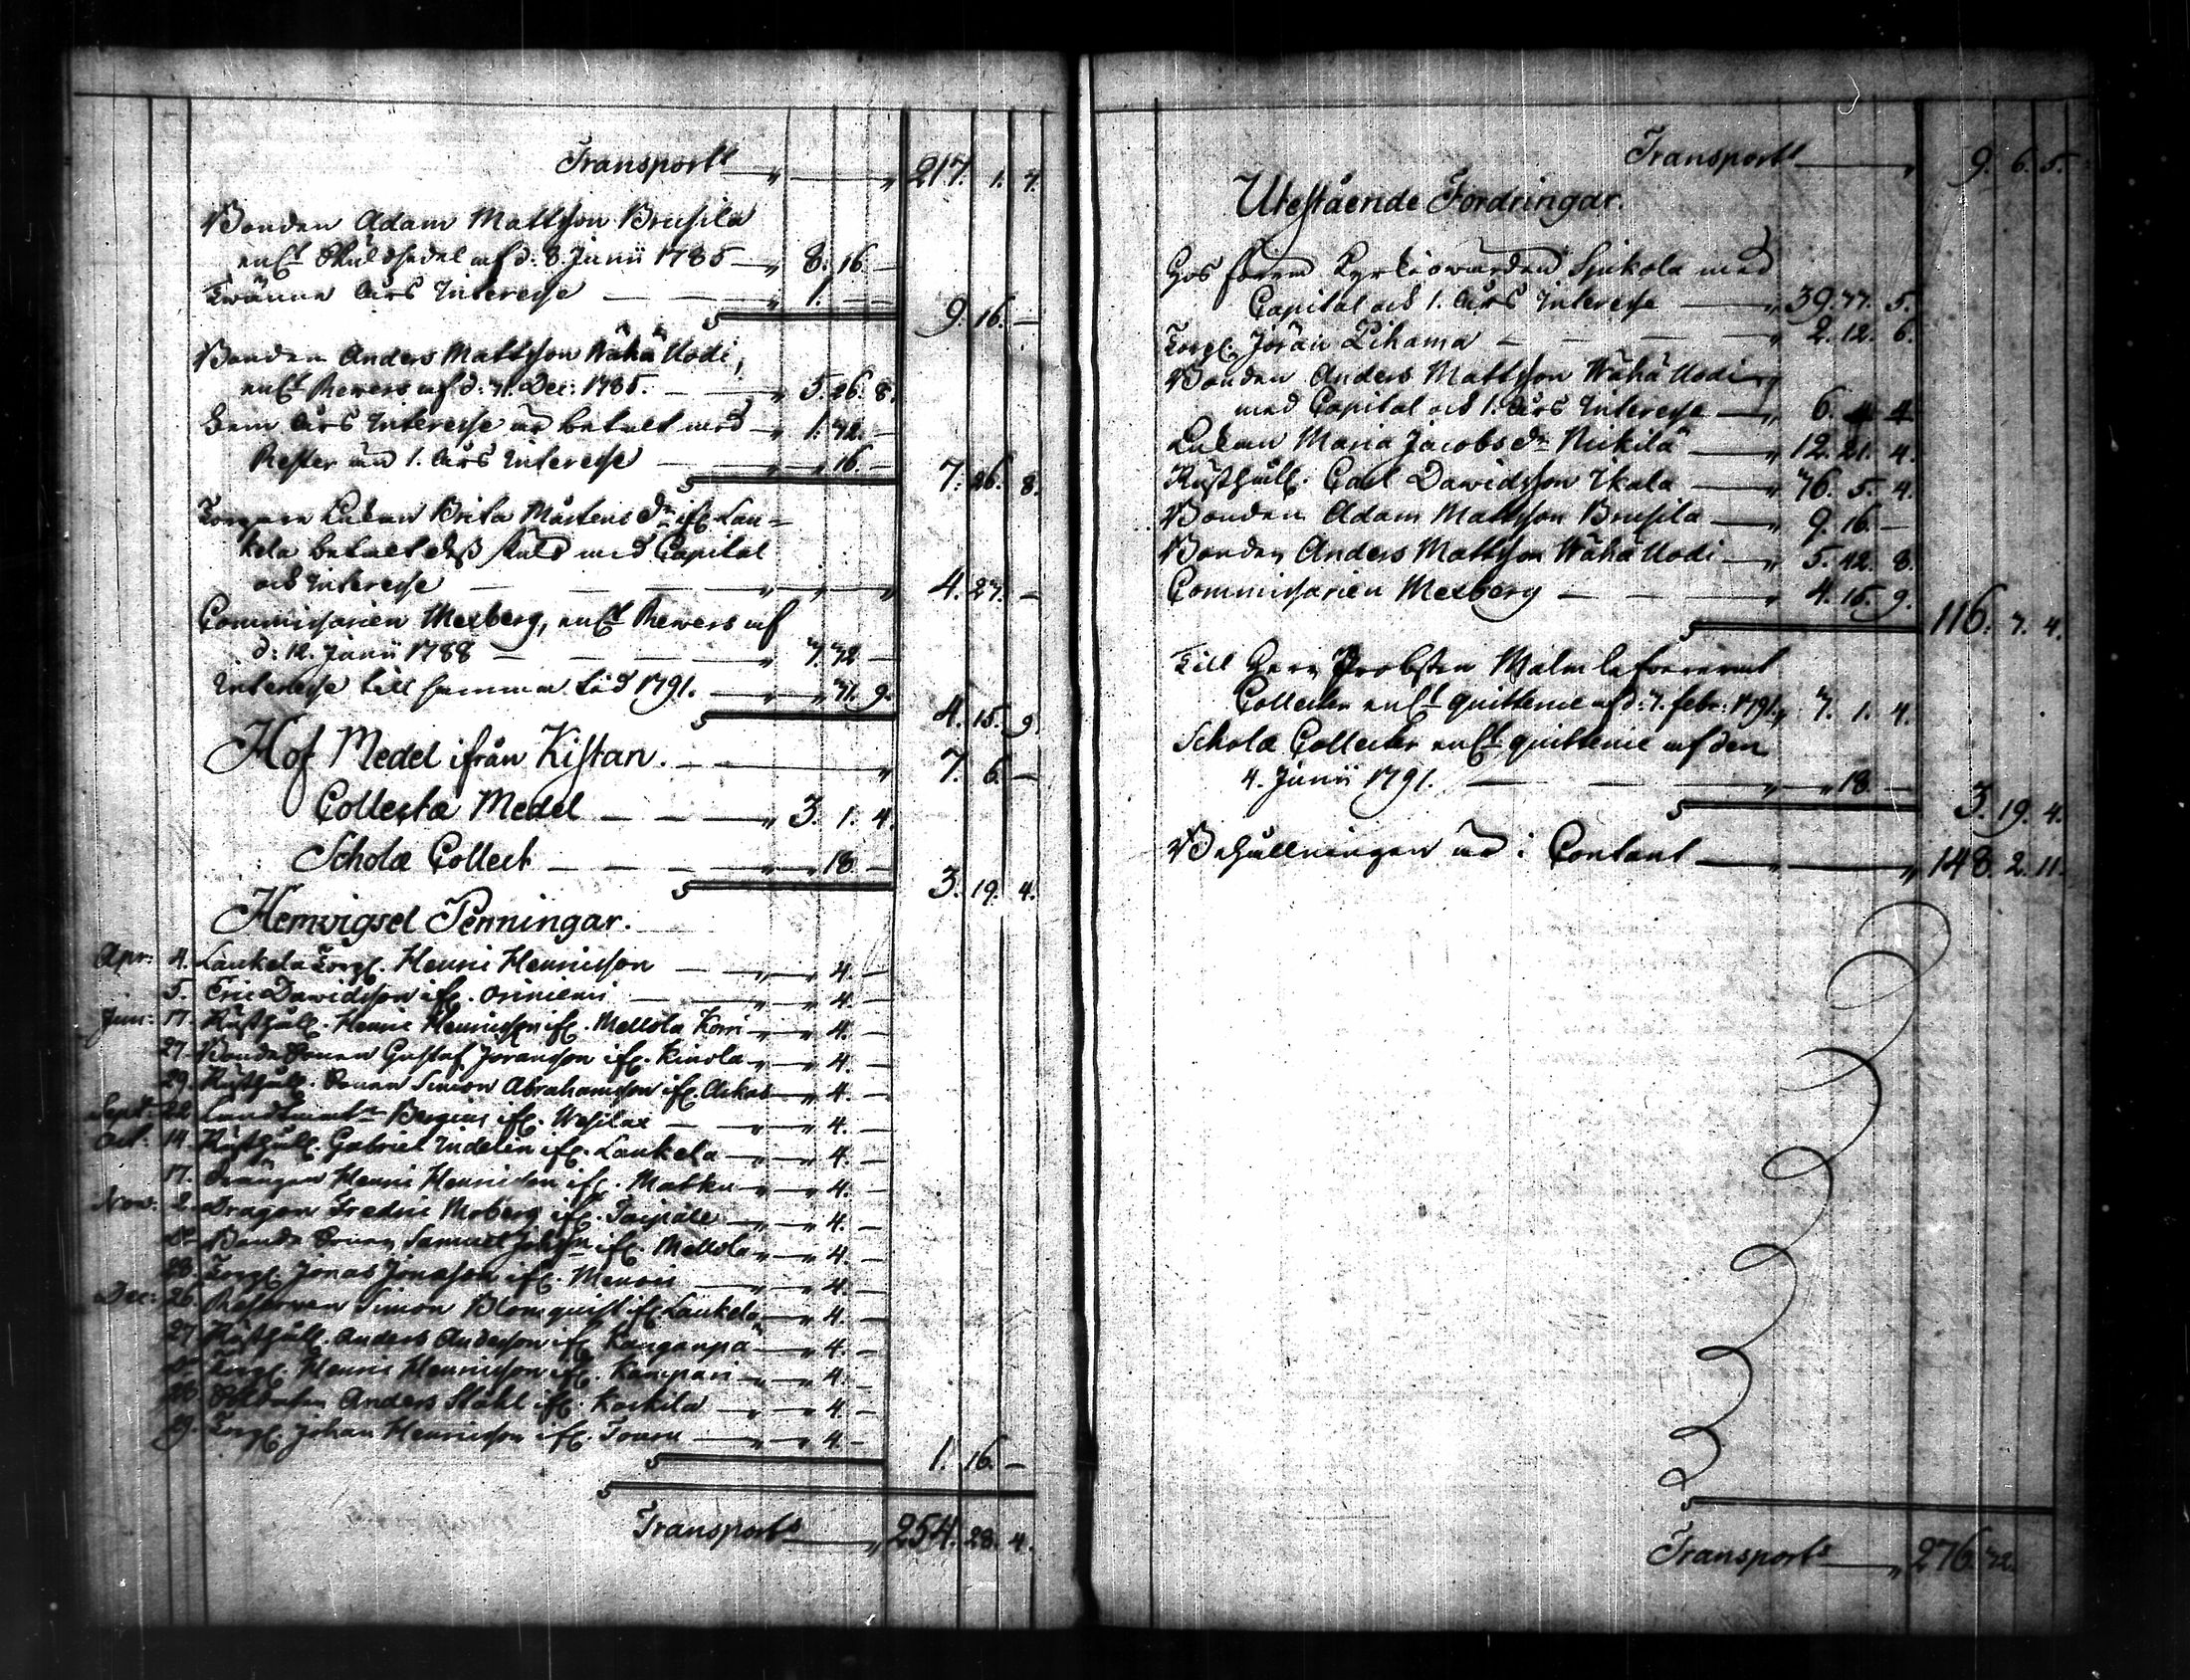 Transport 217. 1. 7.
Bonden Adam Mattsson Brusila
enl:t Skuldsedel af d: 8. Junii 1785 8. 16. —
Tvänne Års Interesse 1. — —
9. 16. —
Bonden Anders Mattsson Wähä Uodi,
enl:t Revers af d: Dec: 1785. 5. 26. 8.
Års Interesse är betalt med
Rester än 1. Års Interesse 16. —
7. 26. 8.
Enkan Brita Mårtens d:r ifr. Lau=
kela betalt dess skuld med Capital
och Interesse 4. 27. —
Commissarien Mexberg, enl:t Revers af
d: 12. Junii 1788
Interesse till samma tid 1791. 9.
4. 15. 9
Hof Medel ifrån Kistan. 7. 6. —
Collecta Medel 3. 1. 4.
Scholæ Collect 18. —
3. 19. 4.
Hemvigsel Penningar.
Apr: 4. Laukela Torp. Henric Henricsson 4. —
5. Eric Davidsson ifr. Oriniemi 4. —
Jun: 17 Rusthåll. Henric Henricsson ifr. Mellola Korri 4. —
27. Bonde Sonen Gustaf Joransson ifr. Kinola 4. —
29. Rusthåll. Sonen Simon Abrahamsson ifr. Askas 4. —
Sept: 22 Bergius ifr. Wesilax 4. —
Oct: 14. Rusthåll. Gabriel Indelin ifr. Laukela 4. —
17. Drängen Henric Henricsson ifr. Matku 4. —
Nov: 2. Dragon Fredric Moberg ifr. Taipale 4. —
d:o Bonde Sonen Samuel ifr. Mellola 4. —
28. Torp. Jonas Jonasson ifr. Menoni 4. —
Dec: 26. Simon Blomquist ifr. Laukela 4. —
27 Rusthåll. Anders Andersson ifr. Kanganpä 4. —
d:o Torp. Henric Henricsson ifr. Kanpari 4. —
28. Soldaten Anders Ståhl ifr. Koskila 4 —
29. Torp. Johan Henricsson ifr. 4 —
1. 16. —
Transport 254. 28. 4.
Transport 9. 6. 5.
Utestående Fordringar.
Hos förra Kyrkiowärden Sjukola med
Capital och 1. Års Interesse 5.
Torp. Jöran Pihama 2. 12. 6.
Bonden Anders Mattsson Wähä Uodi
med Capital och 1. Års Interesse 6. 4 4
Enkan Maria Jacobs d:r Nikilä 12. 21. 4.
Rusthåll. Carl Davidsson Ikala 5. 4.
Bonden Adam Mattsson Brusila 9. 16. —
Bonden Anders Mattsson Wähä Uodi 5. 42. 8.
Commissarien Mexberg 4. 15. 9.
116. 7. 4.
Till Herr Probsten Malm lefvererat
Collecten enl:t quittence af d: 7. febr: 1791. 1. 4.
Scholæ Collecten enl:t quittence af den
4. Junii 1791. 18. —
3. 19. 4.
Behållningen är i Contant 148. 2. 11.
Transport 276.